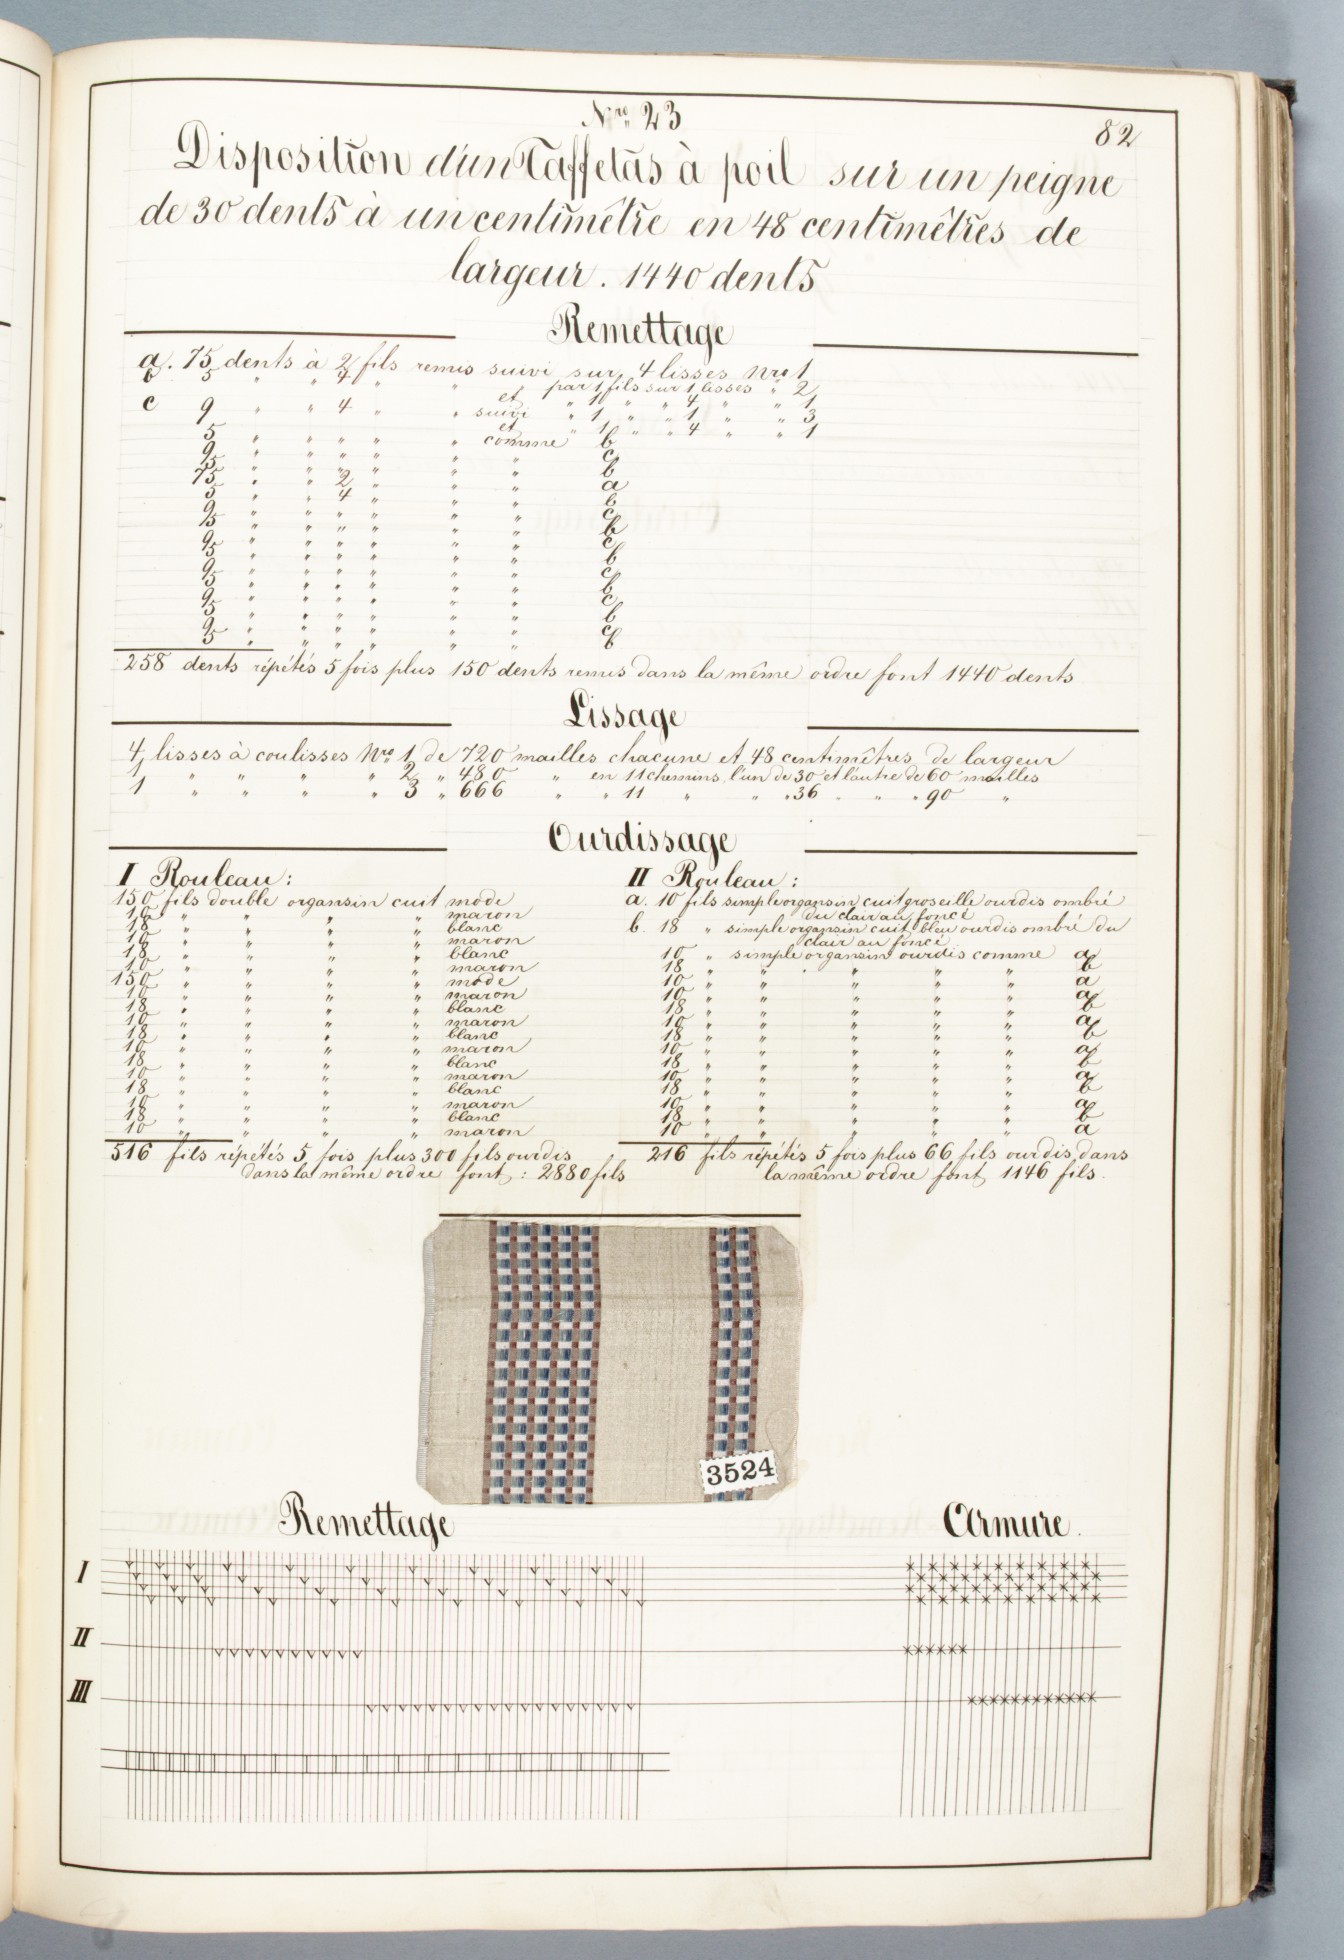 Nro 23
82
Disposition d'un Taffetas à poil sur un peigne
de 30 dents à un centimêtre en 48 centimêtres de
largeur. 1440 dents
Remettage
a. 75 dents à 2 fils remis suivi sur 4 lisses Nro 1
b 5 " " 4 " " par 1 fils sur 1 lisses " 2
et " 1 " " 4 " " 1
c 9 " " 4 " " suivi " 1 " " 1 " " 3
et " 1 " " 4 " " 1
5 " " " " " comme b
9 " " " " " " c
5 " " " " " " b
75 " " 2 " " " a
5 " " 4 " " " b
9 " " " " " " c
5 " " " " " " b
9 " " " " " " c
5 " " " " " " b
9 " " " " " " c
5 " " " " " " b
9 " " " " " " c
5 " " " " " " b
9 " " " " " " c
5 " " " " " " b
258 dents répétés 5 fois plus 150 dents remis dans la même ordre font 1440 dents
Lissage
4 lisses à coulisses Nro 1 de 720 mailles chacune et 48 centimêtres de largeur
1 " " " " 2 " 480 " en 11 chemins, l'un de 30 et l'autre de 60 mailles
1 " " " " 3 " 666 " " 11 " " " 36 " " " 90 "
Ourdissage
I Rouleau:
150 fils double organsin cuit mode
10 " " " " maron
18 " " " " blanc
10 " " " " maron
18 " " " " blanc
10 " " " " maron
150 " " " " mode
10 " " " " maron
18 " " " " blanc
10 " " " " maron
18 " " " " blanc
10 " " " " maron
18 " " " " blanc
10 " " " " maron
18 " " " " blanc
10 " " " " maron
18 " " " " blanc
10 " " " " maron
516 fils répétés 5 fois plus 300 fils ourdis
dans la même ordre font: 2880 fils
II Rouleau:
a. 10 fils simple organsin cuit groseille ourdis ombré
du clair au foncé
b. 18 " simple organsin cuit bleu ourdis ombré du
clair au foncé
10 " simple organsin ourdis comme a
18 " " " " " b
10 " " " " " a
10 " " " " " a
18 " " " " " b
10 " " " " " a
18 " " " " " b
10 " " " " " a
18 " " " " " b
10 " " " " " a
18 " " " " " b
10 " " " " " a
18 " " " " " b
10 " " " " " a
216 fils répétés 5 fois plus 66 fils ourdis dans
la même ordre font 1146 fils.
3524
Remettage
Armure.
I
II
III